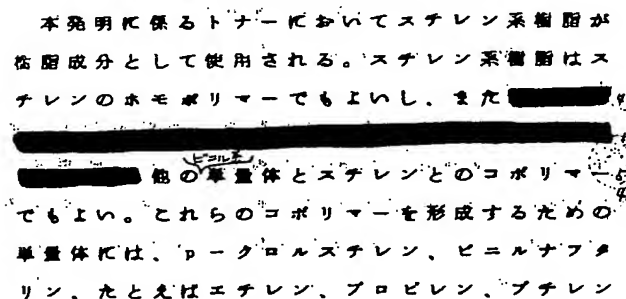 本発明に係るトナーにおいてスチレン系樹脂が
樹脂成分として使用される。スチレン系樹脂はス
チレンのホモポリマーでもよいし、また
ビニル系
他の単量体とスチレンとのコポリマー
でもよい。これらのコポリマーを形成するための
単量体には、p－クロルスチレン、ビニルナフタ
リン、たとえばエチレン、プロピレン、ブチレン